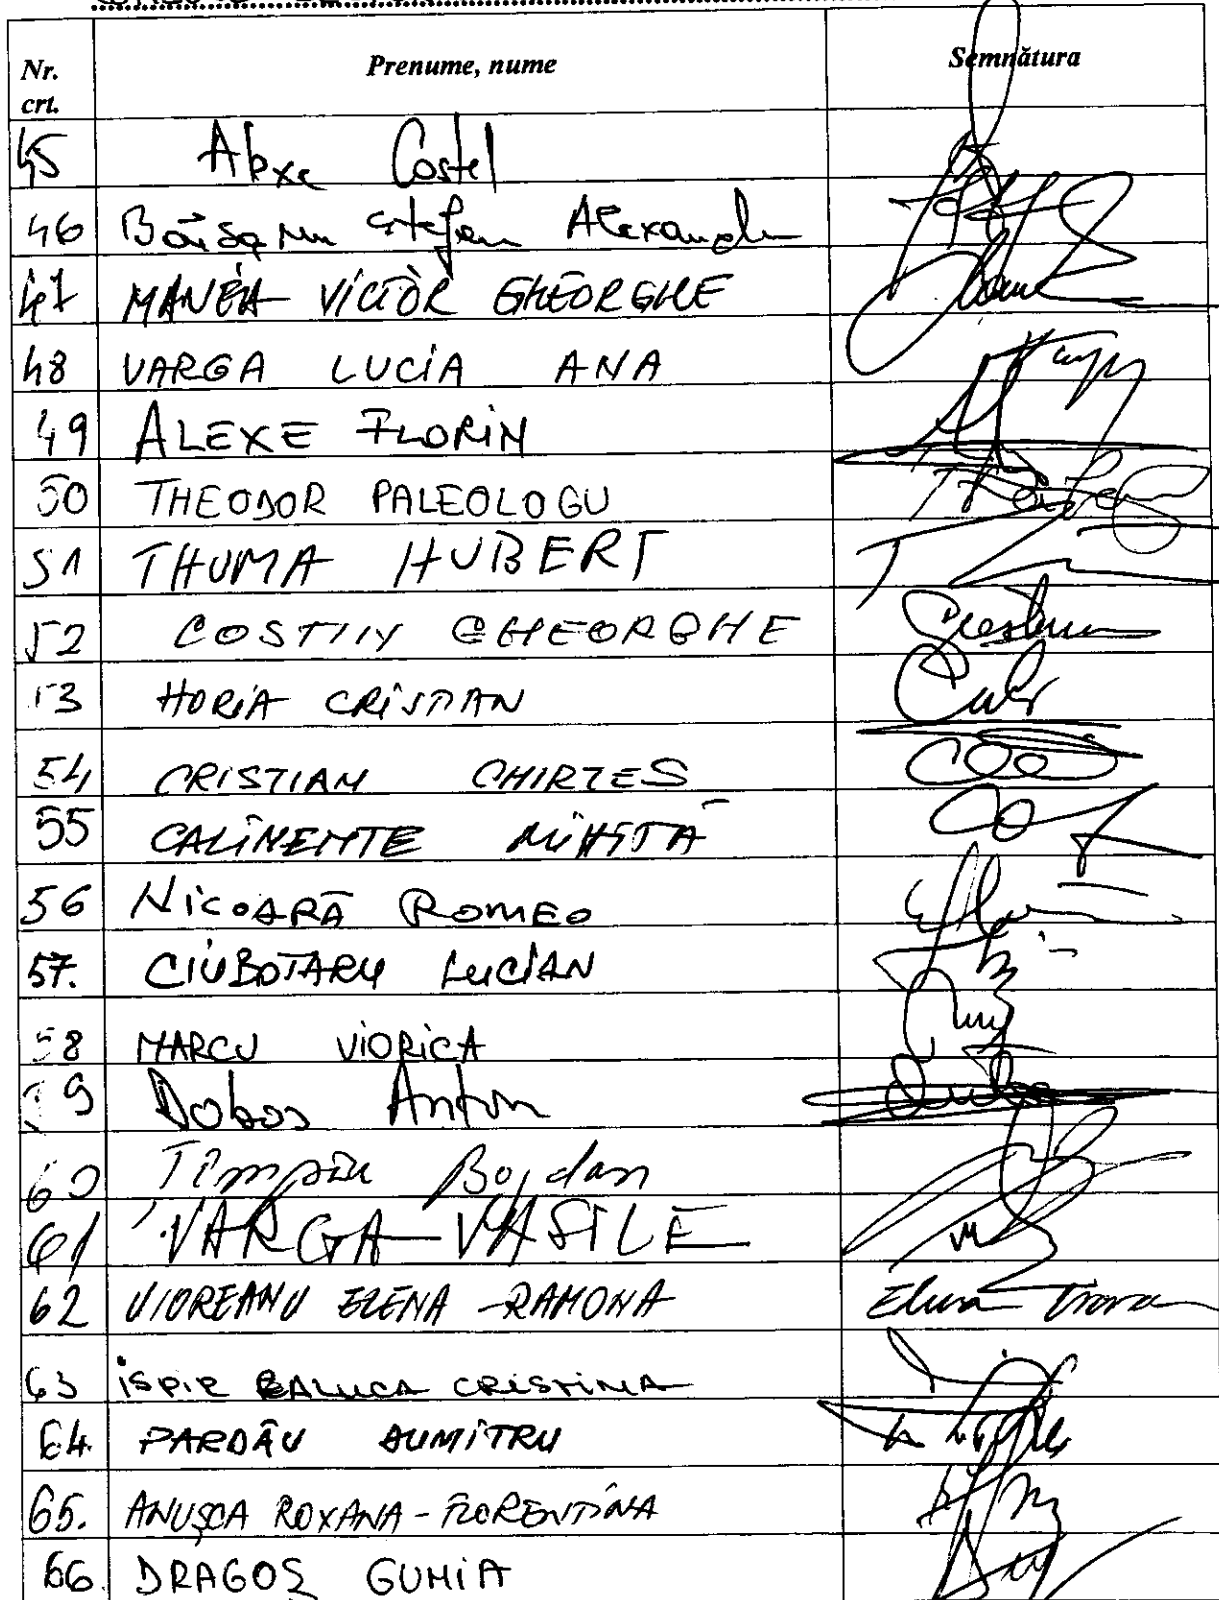 Nr. crt. Prenume, nume Semnătura
45 Alexe Costel
46 Băișanu Ștefan Alexandru
47 MANEA VICTOR GHEORGHE
48 VARGA LUCIA ANA
49 ALEXE FLORIN
50 THEODOR PALEOLOGU
51 THUMA HUBERT
52 COSTIN GHEORGHE
53 HORIA CRISTIAN
54 CRISTIAN CHIRTES
55 CALIMENTE MIHĂIȚĂ
56 NICOARĂ ROMEO
57. CIUBOTARU LUCIAN
58 MARCU VIORICA
59 Dobos Anton
60 Țîmpău Bogdan
61 VARGA VASILE
62 VIOREANU ELENA-RAMONA
63 ISPIR RALUCA CRISTINA
64. PARDĂU DUMITRU
65. ANUȘCA ROXANA-FLORENTINA
66. DRAGOȘ GUMIA